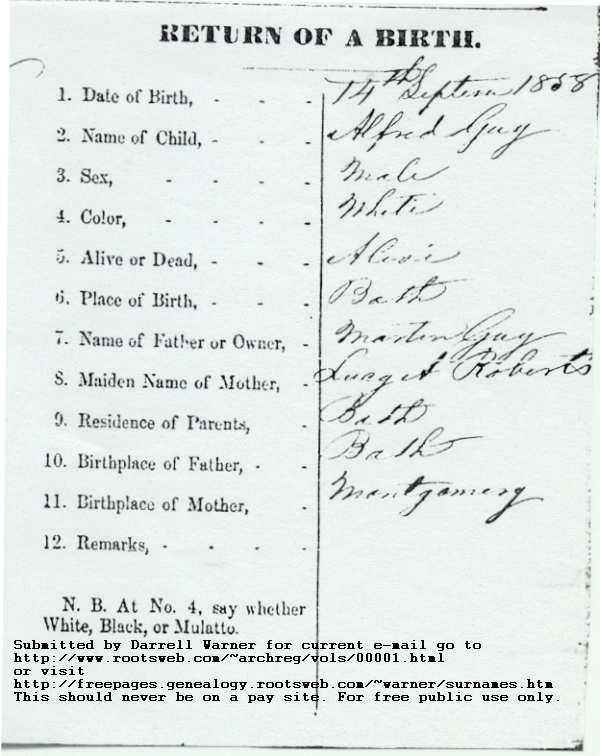 RETURN OF A BIRTH.
1. Date of Birth, - - - 14th Septem 1858
2. Name of Child, - - - Alfred Guy
3. Sex, - - - - Male
4. Color, - - - - White
5. Alive or Dead, - - - Alive
6. Place of Birth, - - - Bath
7. Name of Father or Owner, - Martin Guy
8. Maiden Name of Mother, - Roberts
9. Residence of Parents, - Bath
10. Birthplace of Father, - - Bath
11. Birthplace of Mother, - Montgomery
12. Remarks, - - - -
N. B. At No. 4, say whether
White, Black, or Mulatto.
Submitted by Darrell Warner for current e-mail go to
http://www.rootsweb.com/~archreg/vols/00001.html
or visit
http://freepages.genealogy.rootsweb.com/~warner/surnames.htm
This should never be on a pay site. For free public use only.